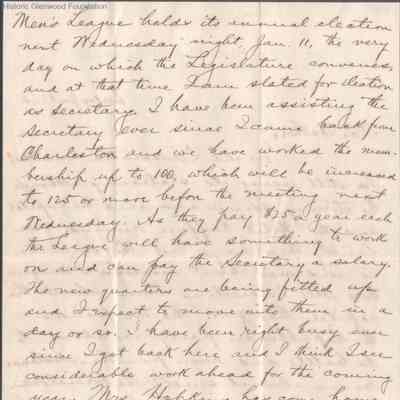 Historic Glenwood Foundation
Men's League holds its annual election
next Wednesday night Jan. 11, the very
day on which the Legislature convenes,
and at that time I am slated for election
as Secretary. I have been assisting the
Secretary ever since I came back from
Charleston and we have worked the mem-
bership up to 100, which will be increased
to 125 or more before the meeting next
Wednesday. As they pay $25 a year each
the League will have something to work
on and can pay the Secretary a salary.
The new quarters are being fitted up
and I expect to move into them in a
day or so. I have been right busy ever
since I got back here and I think I see
considerable work ahead for the coming
year. Mrs. Hopkins has come home